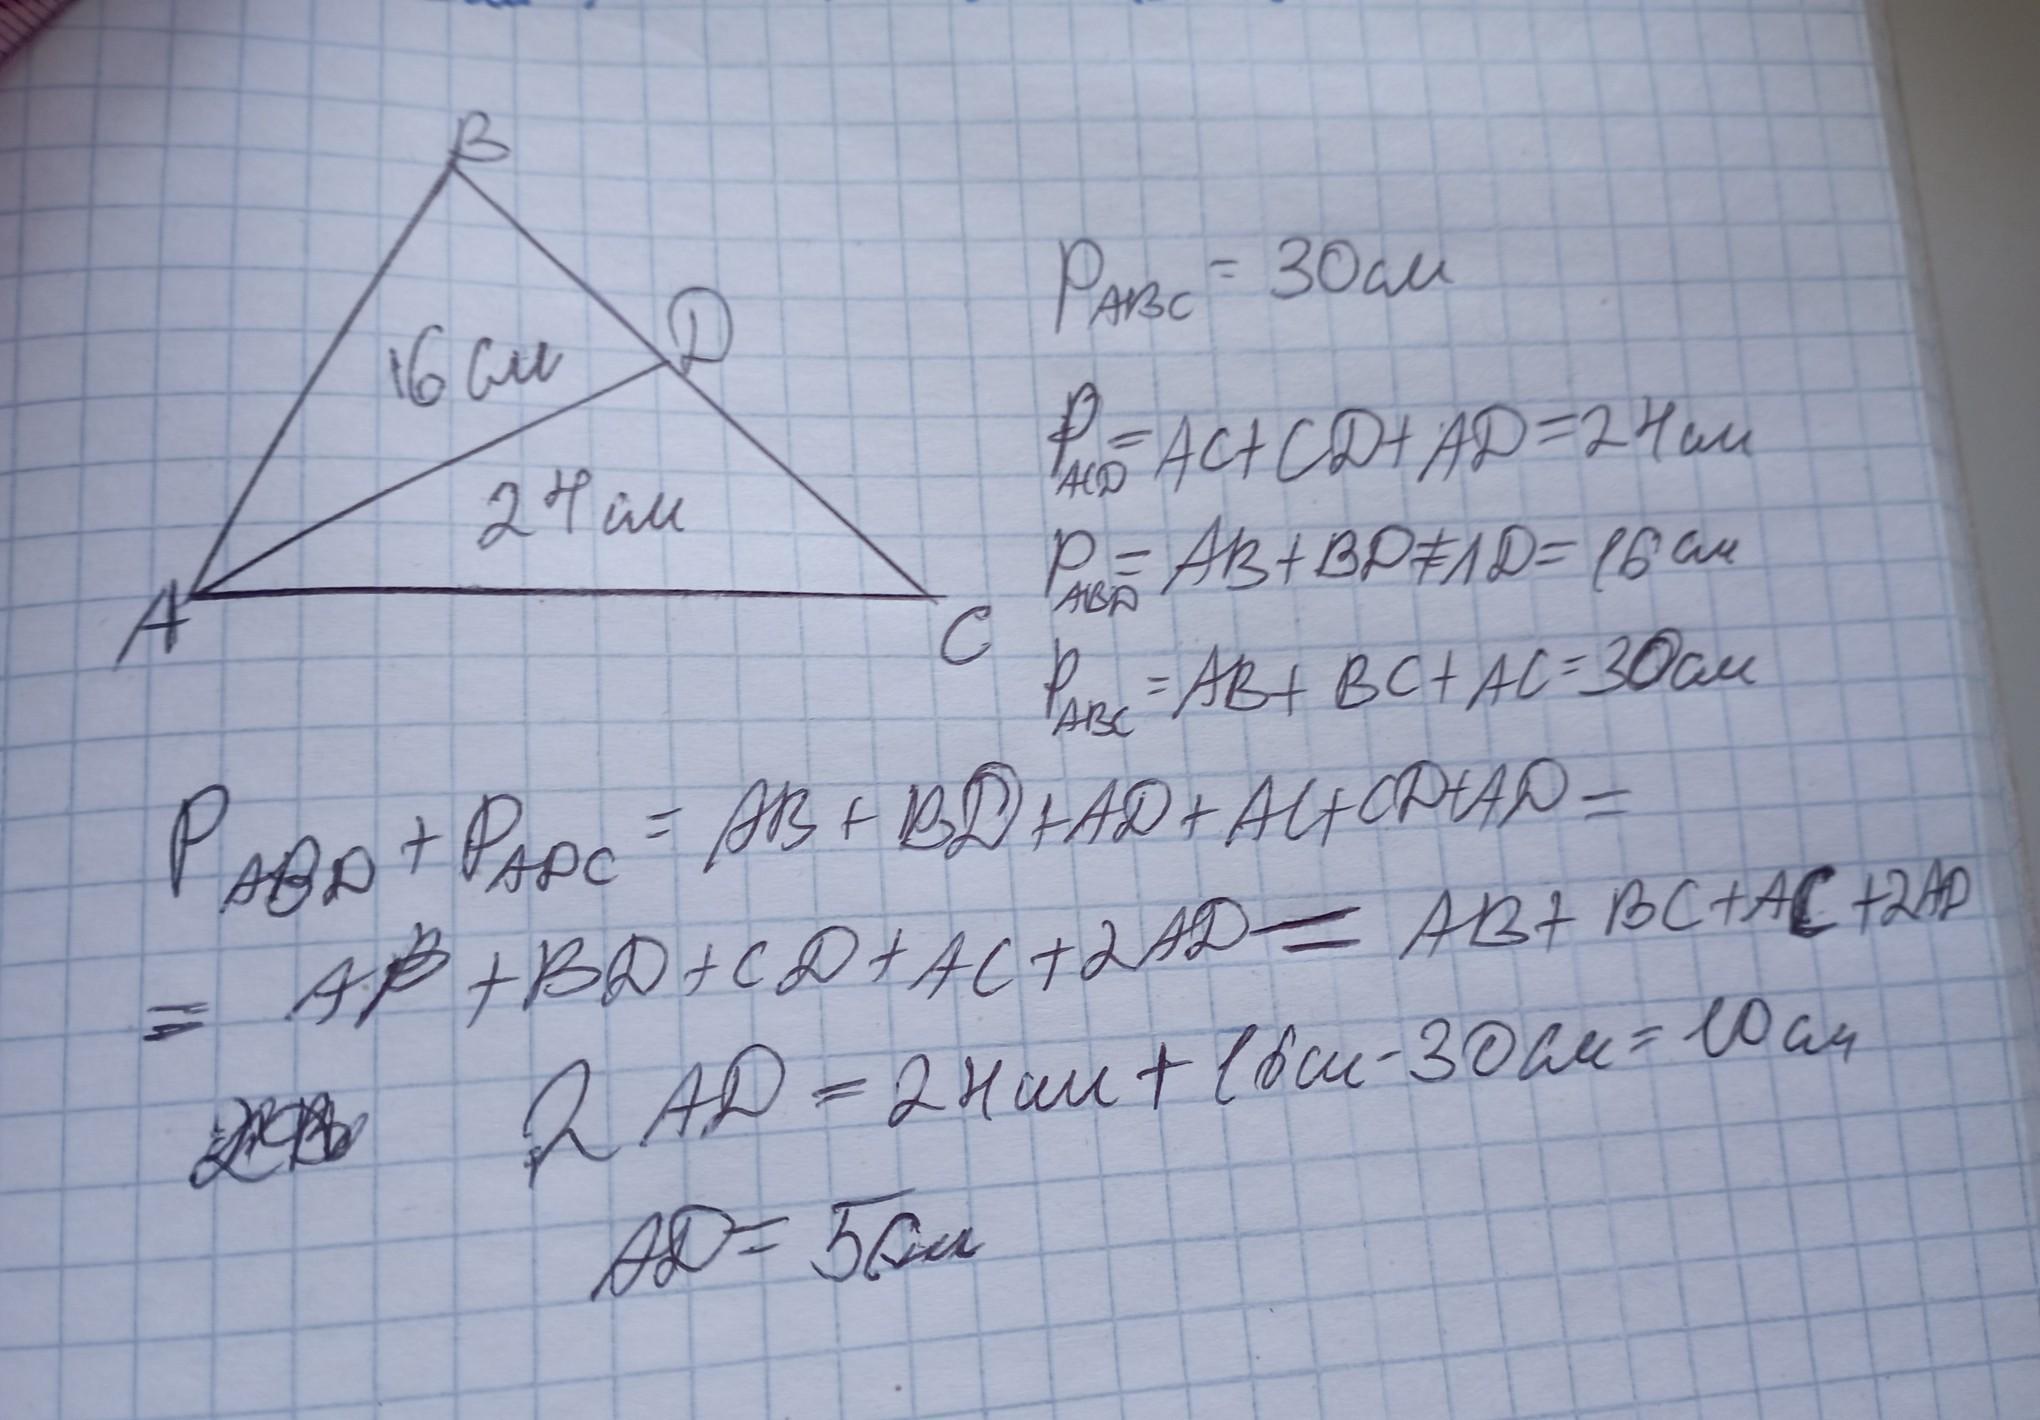 B
D
16 см
24 см
A
C
P_ABC = 30 см
P_ACD = AC + CD + AD = 24 см
P_ABD = AB + BD + AD = 16 см
P_ABC = AB + BC + AC = 30 см
P_ABD + P_ADC = AB + BD + AD + AC + CD + AD =
= AB + BD + CD + AC + 2AD = AB + BC + AC + 2AD
2 AD = 24 см + 16 см - 30 см = 10 см
AD = 5 см